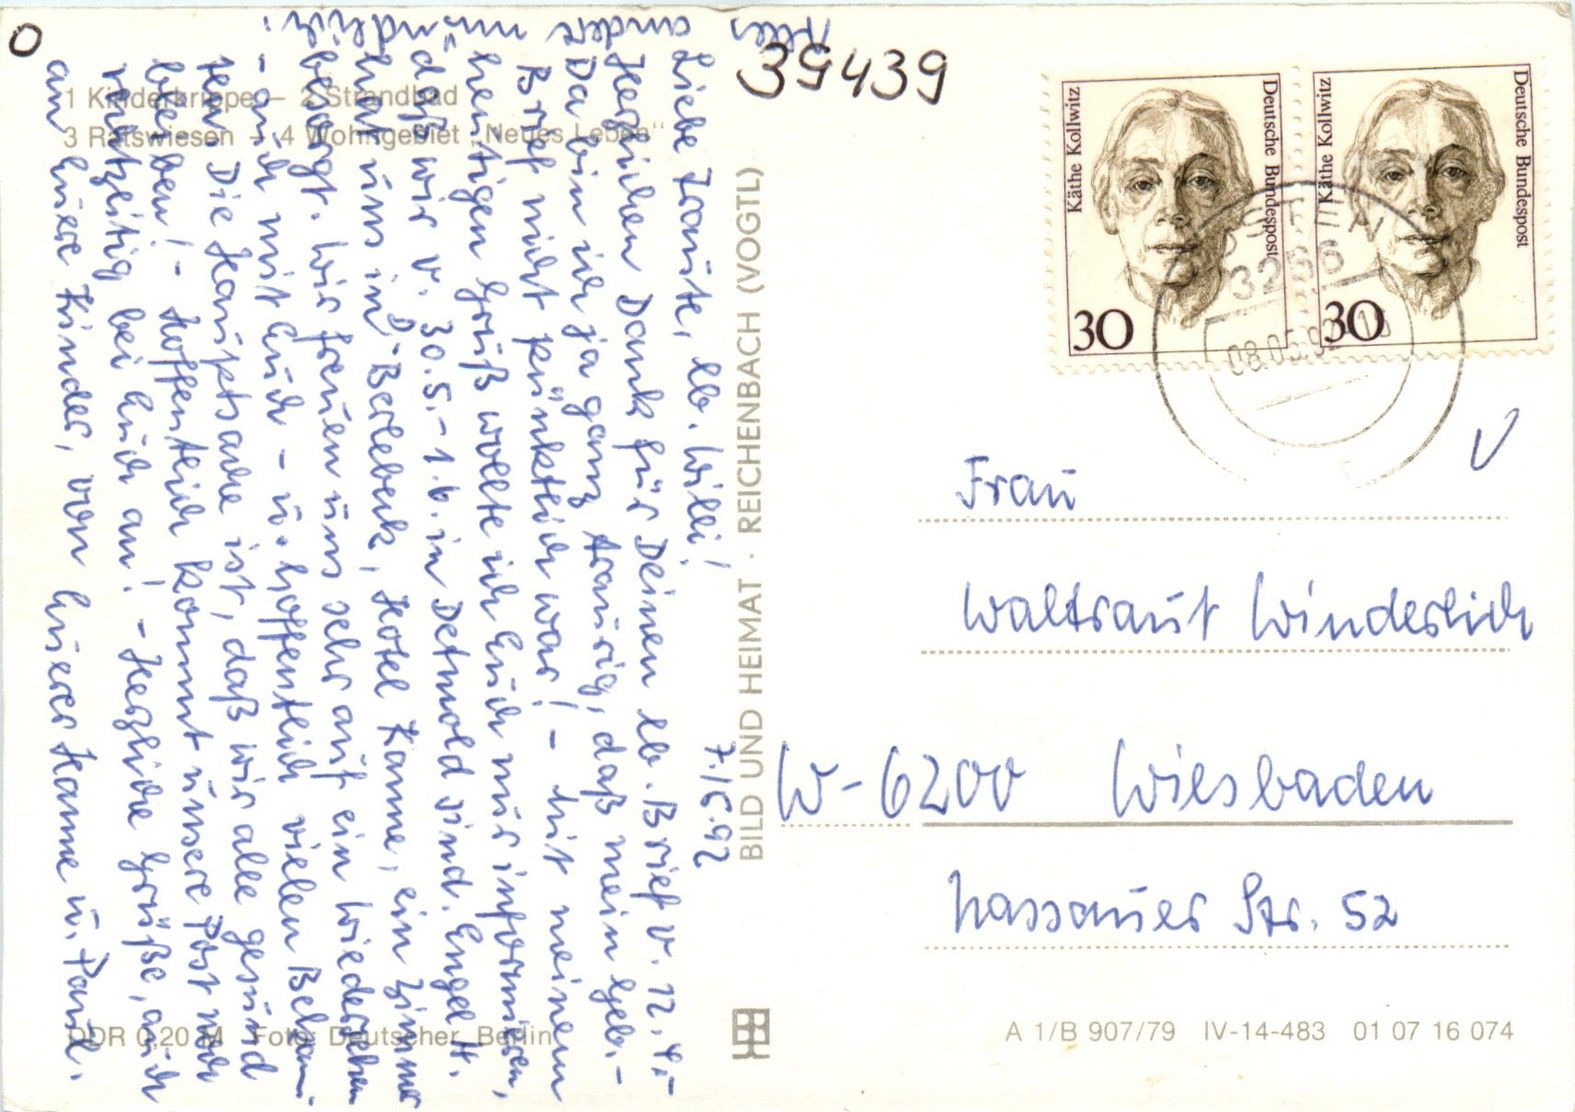 39439
1 Kinderkrippe – 2 Strandbad
3 Ratswiesen – 4 Wohngebiet „Neues Leben"
7./5.92
Liebe Traute, lb. Willi!
Herzlichen Dank für Deinen lb. Brief v. 12.4.-
Da bin ich ja ganz traurig, daß mein Geb.-
Brief nicht pünktlich war! - Mit meinem
heutigen Gruß wollte ich Euch nur informieren,
daß wir v. 30.5.-1.6. in Detmold sind. Engel H.
hat uns in D.-Berlebeck, Hotel Kanne, ein Zimmer
besorgt. Wir freuen uns sehr auf ein Wiedersehen
- auch mit Euch - u. hoffentlich vielen Bekann-
ten. Die Hauptsache ist, daß wir alle gesund
bleiben! - Hoffentlich kommt unsere Post noch
rechtzeitig bei Euch an! - Herzliche Grüße, auch
an Eure Kinder, von Eurer Hanne u. Paul.
Alles andere mündlich!
DDR 0,20 M Foto: Deutscher, Berlin
BILD UND HEIMAT · REICHENBACH (VOGTL)
Käthe Kollwitz
Deutsche Bundespost
30
Käthe Kollwitz
Deutsche Bundespost
30
08.05.92
Frau
Waltraut Winderlich
W-6200 Wiesbaden
Nassauer Str. 52
A 1/B 907/79 IV-14-483 01 07 16 074